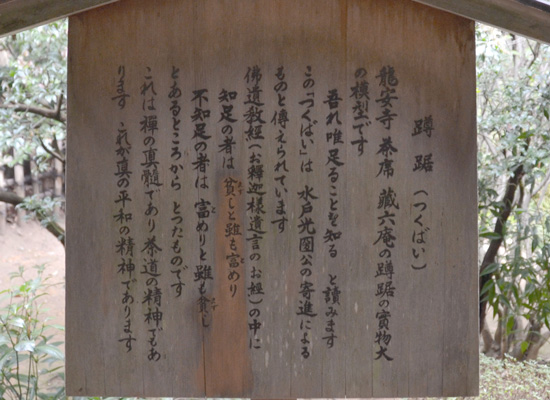 蹲踞（つくばい）
龍安寺茶席 藏六庵の蹲踞の實物大
の模型です
吾れ唯足ることを知る と読みます
この「つくばい」は 水戸光圀公の寄進による
ものと傳えられています
佛道教經（お釋迦様遺言のお經）の中に
知足の者は 貧しと雖も富めり
不知足の者は 富めりと雖も貧し
とあるところから とったものです
これは禅の真髄であり 茶道の精神でもあ
ります これが真の平和の精神であります